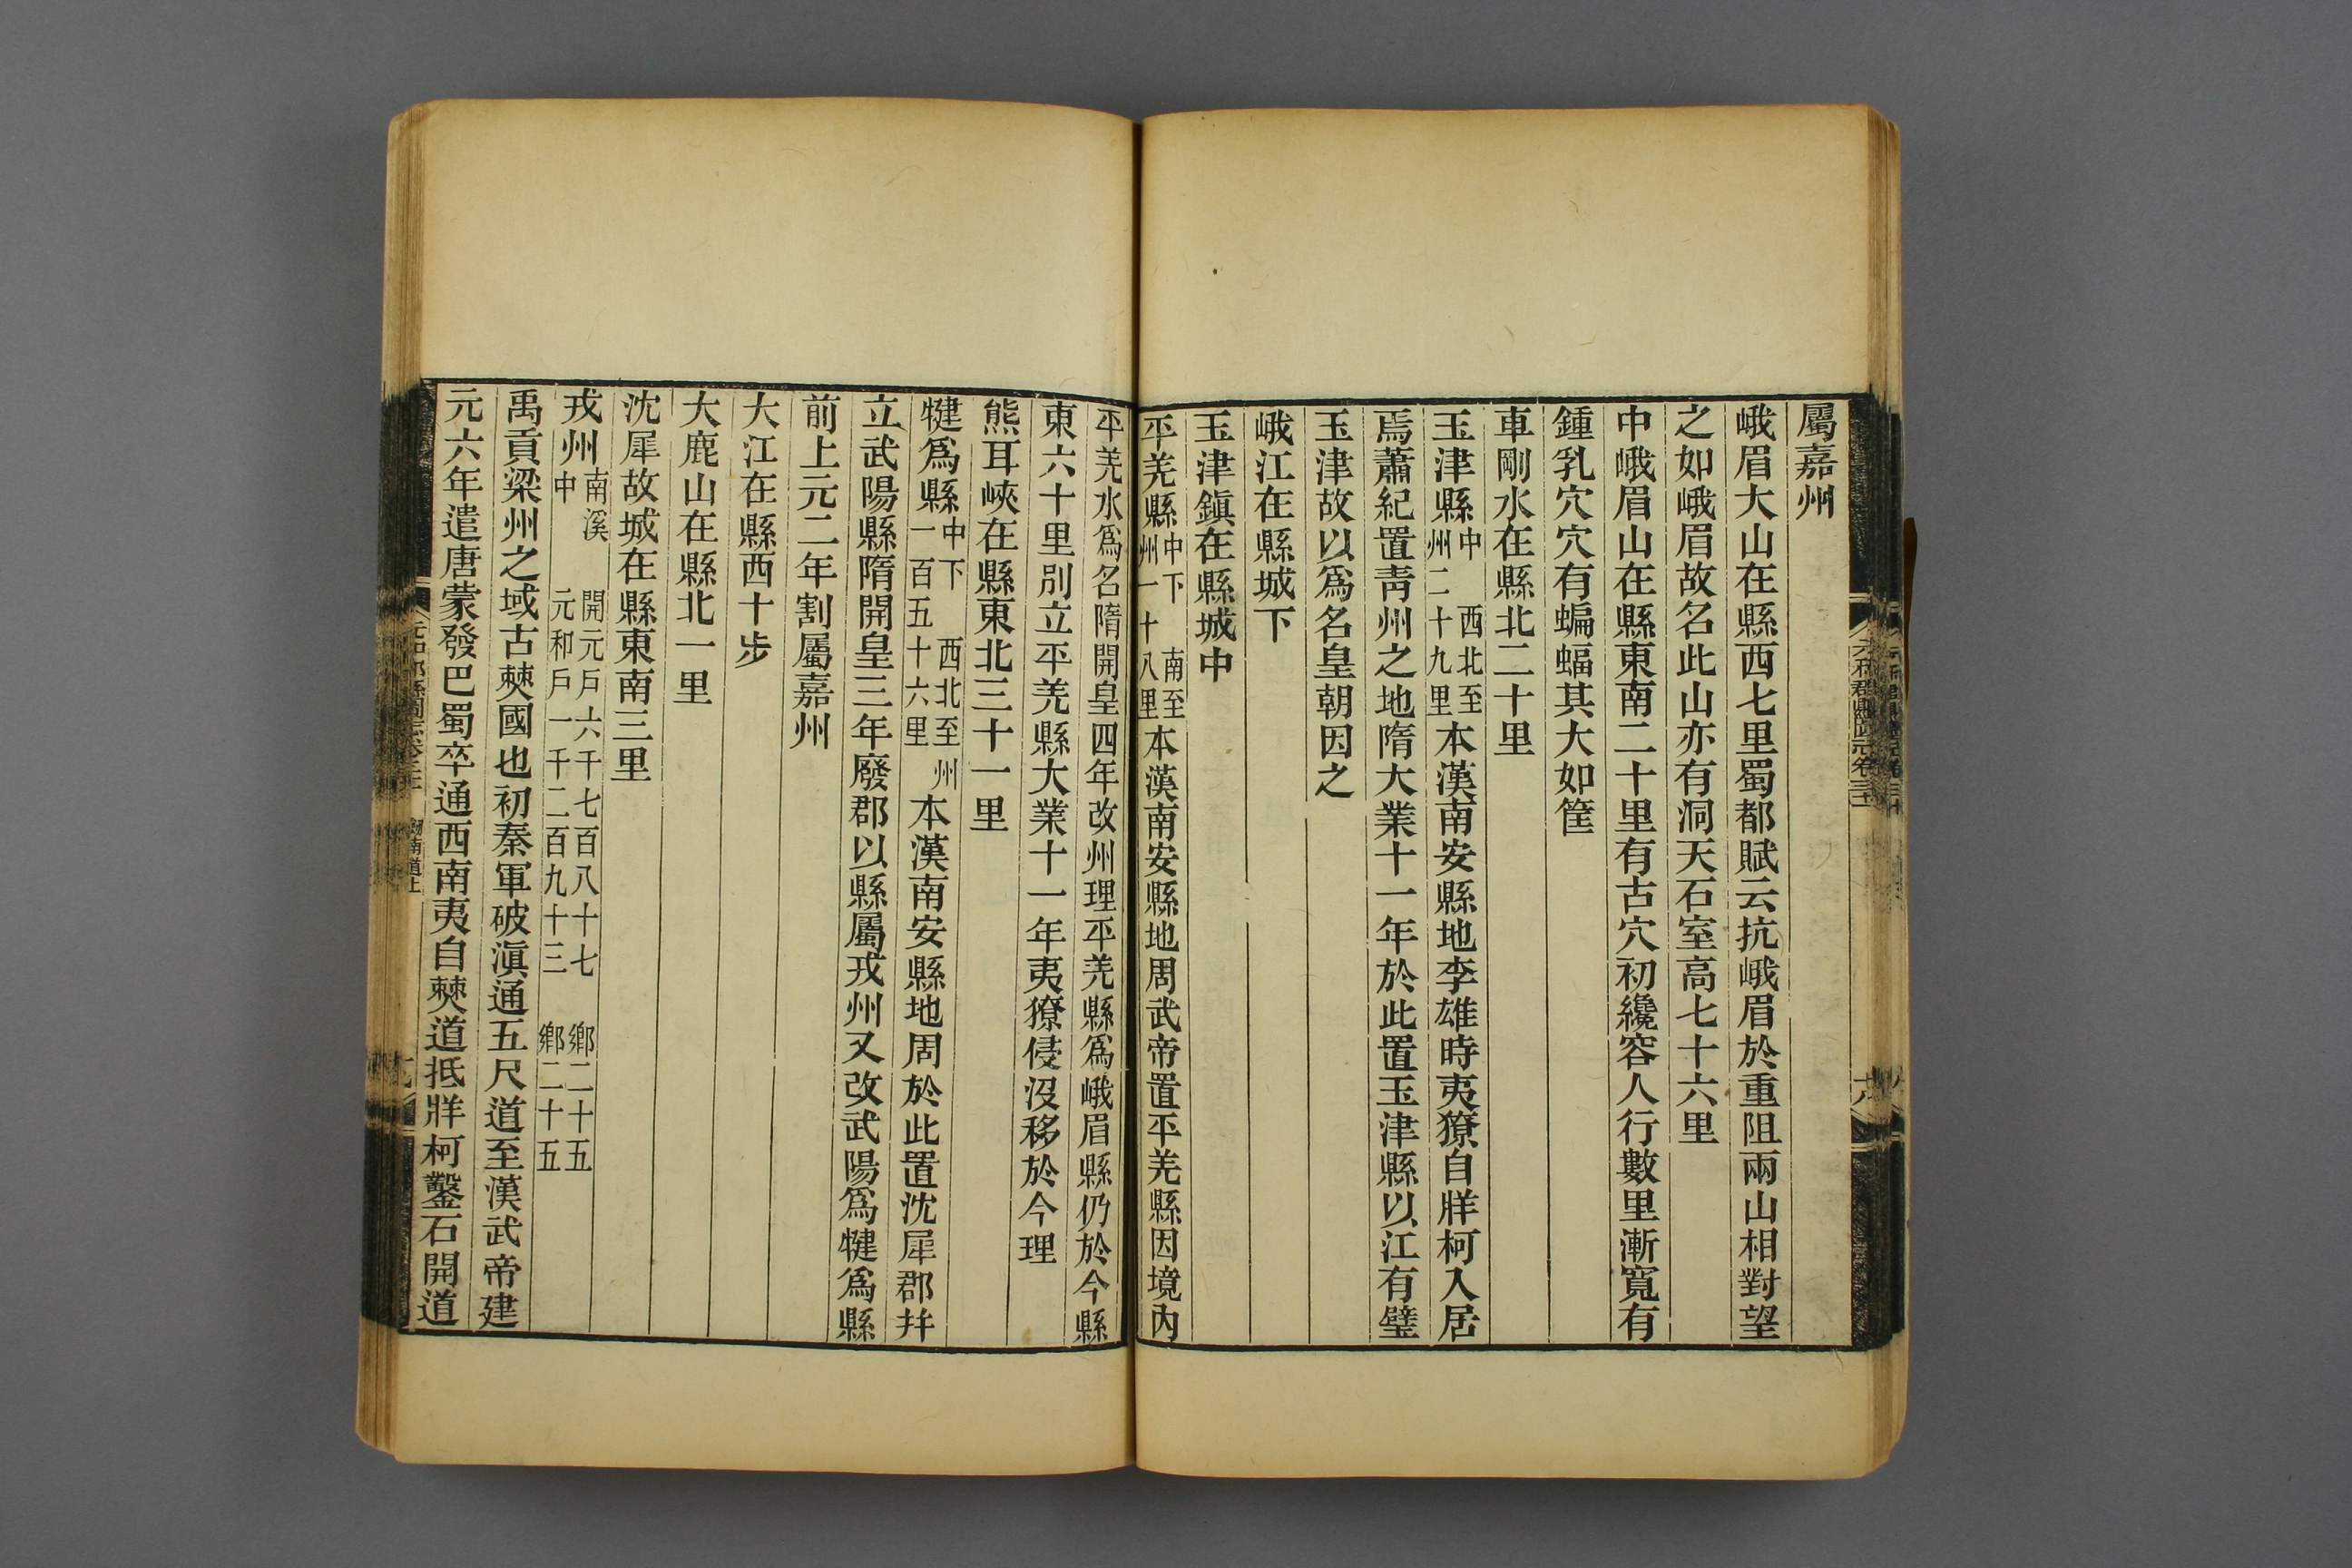 屬嘉州
峨眉大山在縣西七里蜀都賦云抗峨眉於重阻兩山相對望
之如峨眉故名此山亦有洞天石室高七十六里
中峨眉山在縣東南二十里有古穴初纔容人行數里漸寬有
鍾乳穴穴有蝙蝠其大如筐
車剛水在縣北二十里
玉津縣中 西北至州二十九里本漢南安縣地李雄時夷獠自牂柯入居
焉蕭紀置靑州之地隋大業十一年於此置玉津縣以江有璧
玉津故以爲名皇朝因之
峨江在縣城下
玉津鎭在縣城中
平羌縣中下 南至州一十八里本漢南安縣地周武帝置平羌縣因境內
平羌水爲名隋開皇四年改州理平羌縣爲峨眉縣仍於今縣
東六十里別立平羌縣大業十一年夷獠侵沒移於今理
熊耳峽在縣東北三十一里
犍爲縣中下 西北至州一百五十六里本漢南安縣地周於此置沈犀郡幷
立武陽縣隋開皇三年廢郡以縣屬戎州又改武陽爲犍爲縣
前上元二年割屬嘉州
大江在縣西十步
大鹿山在縣北一里
沈犀故城在縣東南三里
戎州南溪中 開元戶六千七百八十七 鄉二十五 元和戶一千二百九十三 鄉二十五
禹貢梁州之域古僰國也初秦軍破滇通五尺道至漢武帝建
元六年遣唐蒙發巴蜀卒通西南夷自僰道抵牂柯鑿石開道